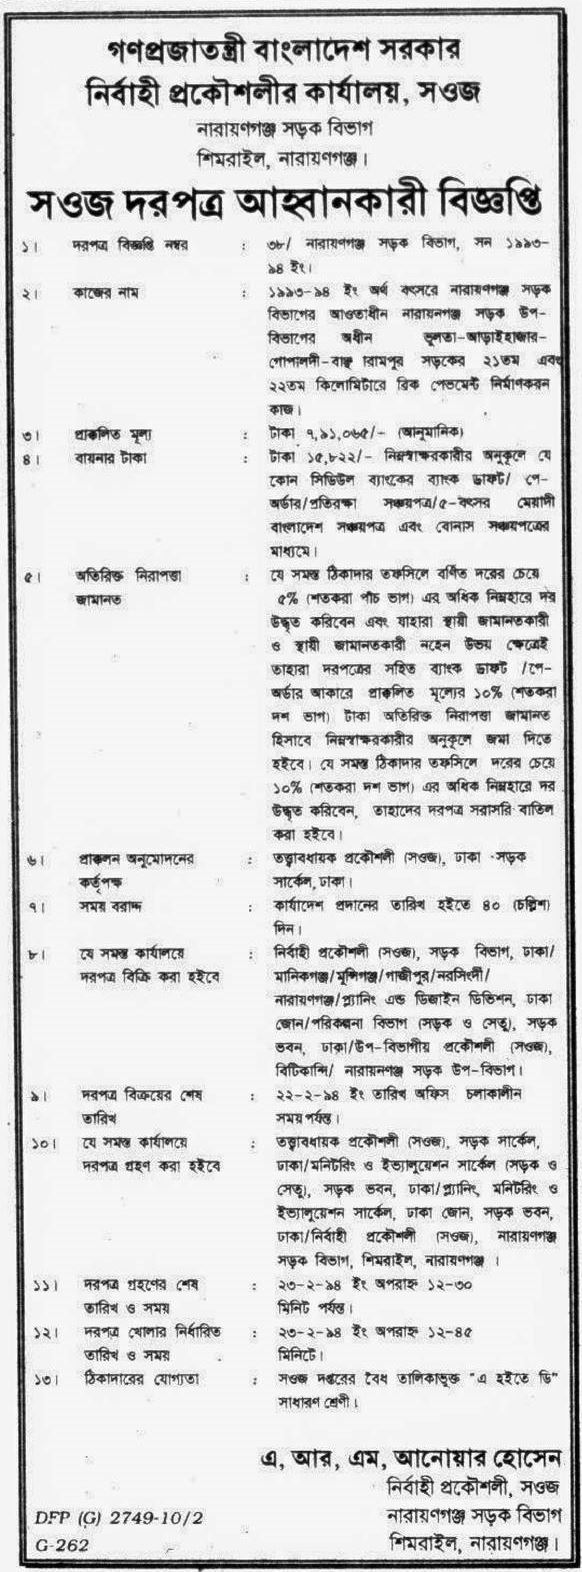 গণপ্রজাতন্ত্রী বাংলাদেশ সরকার
নির্বাহী প্রকৌশলীর কার্যালয়, সওজ
নারায়ণগঞ্জ সড়ক বিভাগ
শিমরাইল, নারায়ণগঞ্জ।
সওজ দরপত্র আহ্বানকারী বিজ্ঞপ্তি
১। দরপত্র বিজ্ঞপ্তি নম্বর : ৩৮/ নারায়ণগঞ্জ সড়ক বিভাগ, সন ১৯৯৩-
৯৪ ইং।
২। কাজের নাম : ১৯৯৩-৯৪ ইং অর্থ বৎসরে নারায়ণগঞ্জ সড়ক
বিভাগের আওতাধীন নারায়নগঞ্জ সড়ক উপ-
বিভাগের অধীন ভুলতা-আড়াইহাজার-
গোপালদী-বাঞ্ছারামপুর সড়কের ২১তম এবং
২২তম কিলোমিটারে ব্রিক পেভমেন্ট নির্মাণকরন
কাজ।
৩। প্রাক্কলিত মূল্য : টাকা ৭,৯১,০৬৫/- (আনুমানিক)
৪। বায়নার টাকা : টাকা ১৫,৮২২/- নিম্নস্বাক্ষরকারীর অনুকূলে যে
কোন সিডিউল ব্যাংকের ব্যাংক ড্রাফট/ পে-
অর্ডার/প্রতিরক্ষা সঞ্চয়পত্র/৫-বৎসর মেয়াদী
বাংলাদেশ সঞ্চয়পত্র এবং বোনাস সঞ্চয়পত্রের
মাধ্যমে।
৫। অতিরিক্ত নিরাপত্তা : যে সমস্ত ঠিকাদার তফসিলে বর্ণিত দরের চেয়ে
জামানত ৫% (শতকরা পাঁচ ভাগ) এর অধিক নিম্নহারে দর
উদ্ধৃত করিবেন এবং যাহারা স্থায়ী জামানতকারী
ও স্থায়ী জামানতকারী নহেন উভয় ক্ষেত্রেই
তাহারা দরপত্রের সহিত ব্যাংক ড্রাফট /পে-
অর্ডার আকারে প্রাক্কলিত মূল্যের ১০% (শতকরা
দশ ভাগ) টাকা অতিরিক্ত নিরাপত্তা জামানত
হিসাবে নিম্নস্বাক্ষরকারীর অনুকূলে জমা দিতে
হইবে। যে সমস্ত ঠিকাদার তফসিলে দরের চেয়ে
১০% (শতকরা দশ ভাগ) এর অধিক নিম্নহারে দর
উদ্ধৃত করিবেন, তাহাদের দরপত্র সরাসরি বাতিল
করা হইবে।
৬। প্রাক্কলন অনুমোদনের : তত্ত্বাবধায়ক প্রকৌশলী (সওজ), ঢাকা সড়ক
কর্তৃপক্ষ সার্কেল, ঢাকা।
৭। সময় বরাদ্দ : কার্যাদেশ প্রদানের তারিখ হইতে ৪০ (চল্লিশ)
দিন।
৮। যে সমস্ত কার্যালয়ে : নির্বাহী প্রকৌশলী (সওজ), সড়ক বিভাগ, ঢাকা/
দরপত্র বিক্রি করা হইবে মানিকগঞ্জ/মুন্সিগঞ্জ/গাজীপুর/নরসিংদী/
নারায়ণগঞ্জ/প্ল্যানিং এন্ড ডিজাইন ডিভিশন, ঢাকা
জোন/পরিকল্পনা বিভাগ (সড়ক ও সেতু), সড়ক
ভবন, ঢাকা/উপ-বিভাগীয় প্রকৌশলী (সওজ),
ভিটিকান্দি/ নারায়নগঞ্জ সড়ক উপ-বিভাগ।
৯। দরপত্র বিক্রয়ের শেষ : ২২-২-৯৪ ইং তারিখ অফিস চলাকালীন
তারিখ সময় পর্যন্ত।
১০। যে সমস্ত কার্যালয়ে : তত্ত্বাবধায়ক প্রকৌশলী (সওজ), সড়ক সার্কেল,
দরপত্র গ্রহণ করা হইবে ঢাকা/মনিটরিং ও ইভ্যালুয়েশন সার্কেল (সড়ক ও
সেতু), সড়ক ভবন, ঢাকা/প্ল্যানিং, মনিটরিং ও
ইভ্যালুয়েশন সার্কেল, ঢাকা জোন, সড়ক ভবন,
ঢাকা/নির্বাহী প্রকৌশলী (সওজ), নারায়ণগঞ্জ
সড়ক বিভাগ, শিমরাইল, নারায়ণগঞ্জ ।
১১। দরপত্র গ্রহণের শেষ : ২৩-২-৯৪ ইং অপরাহ্ন ১২-৩০
তারিখ ও সময় মিনিট পর্যন্ত।
১২। দরপত্র খোলার নির্ধারিত : ২৩-২-৯৪ ইং অপরাহ্ন ১২-৪৫
তারিখ ও সময় মিনিটে।
১৩। ঠিকাদারের যোগ্যতা : সওজ দপ্তরের বৈধ তালিকাভুক্ত "এ হইতে ডি"
সাধারণ শ্রেণী।
এ, আর, এম, আনোয়ার হোসেন
নির্বাহী প্রকৌশলী, সওজ
DFP (G) 2749-10/2 নারায়ণগঞ্জ সড়ক বিভাগ
G-262 শিমরাইল, নারায়ণগঞ্জ।